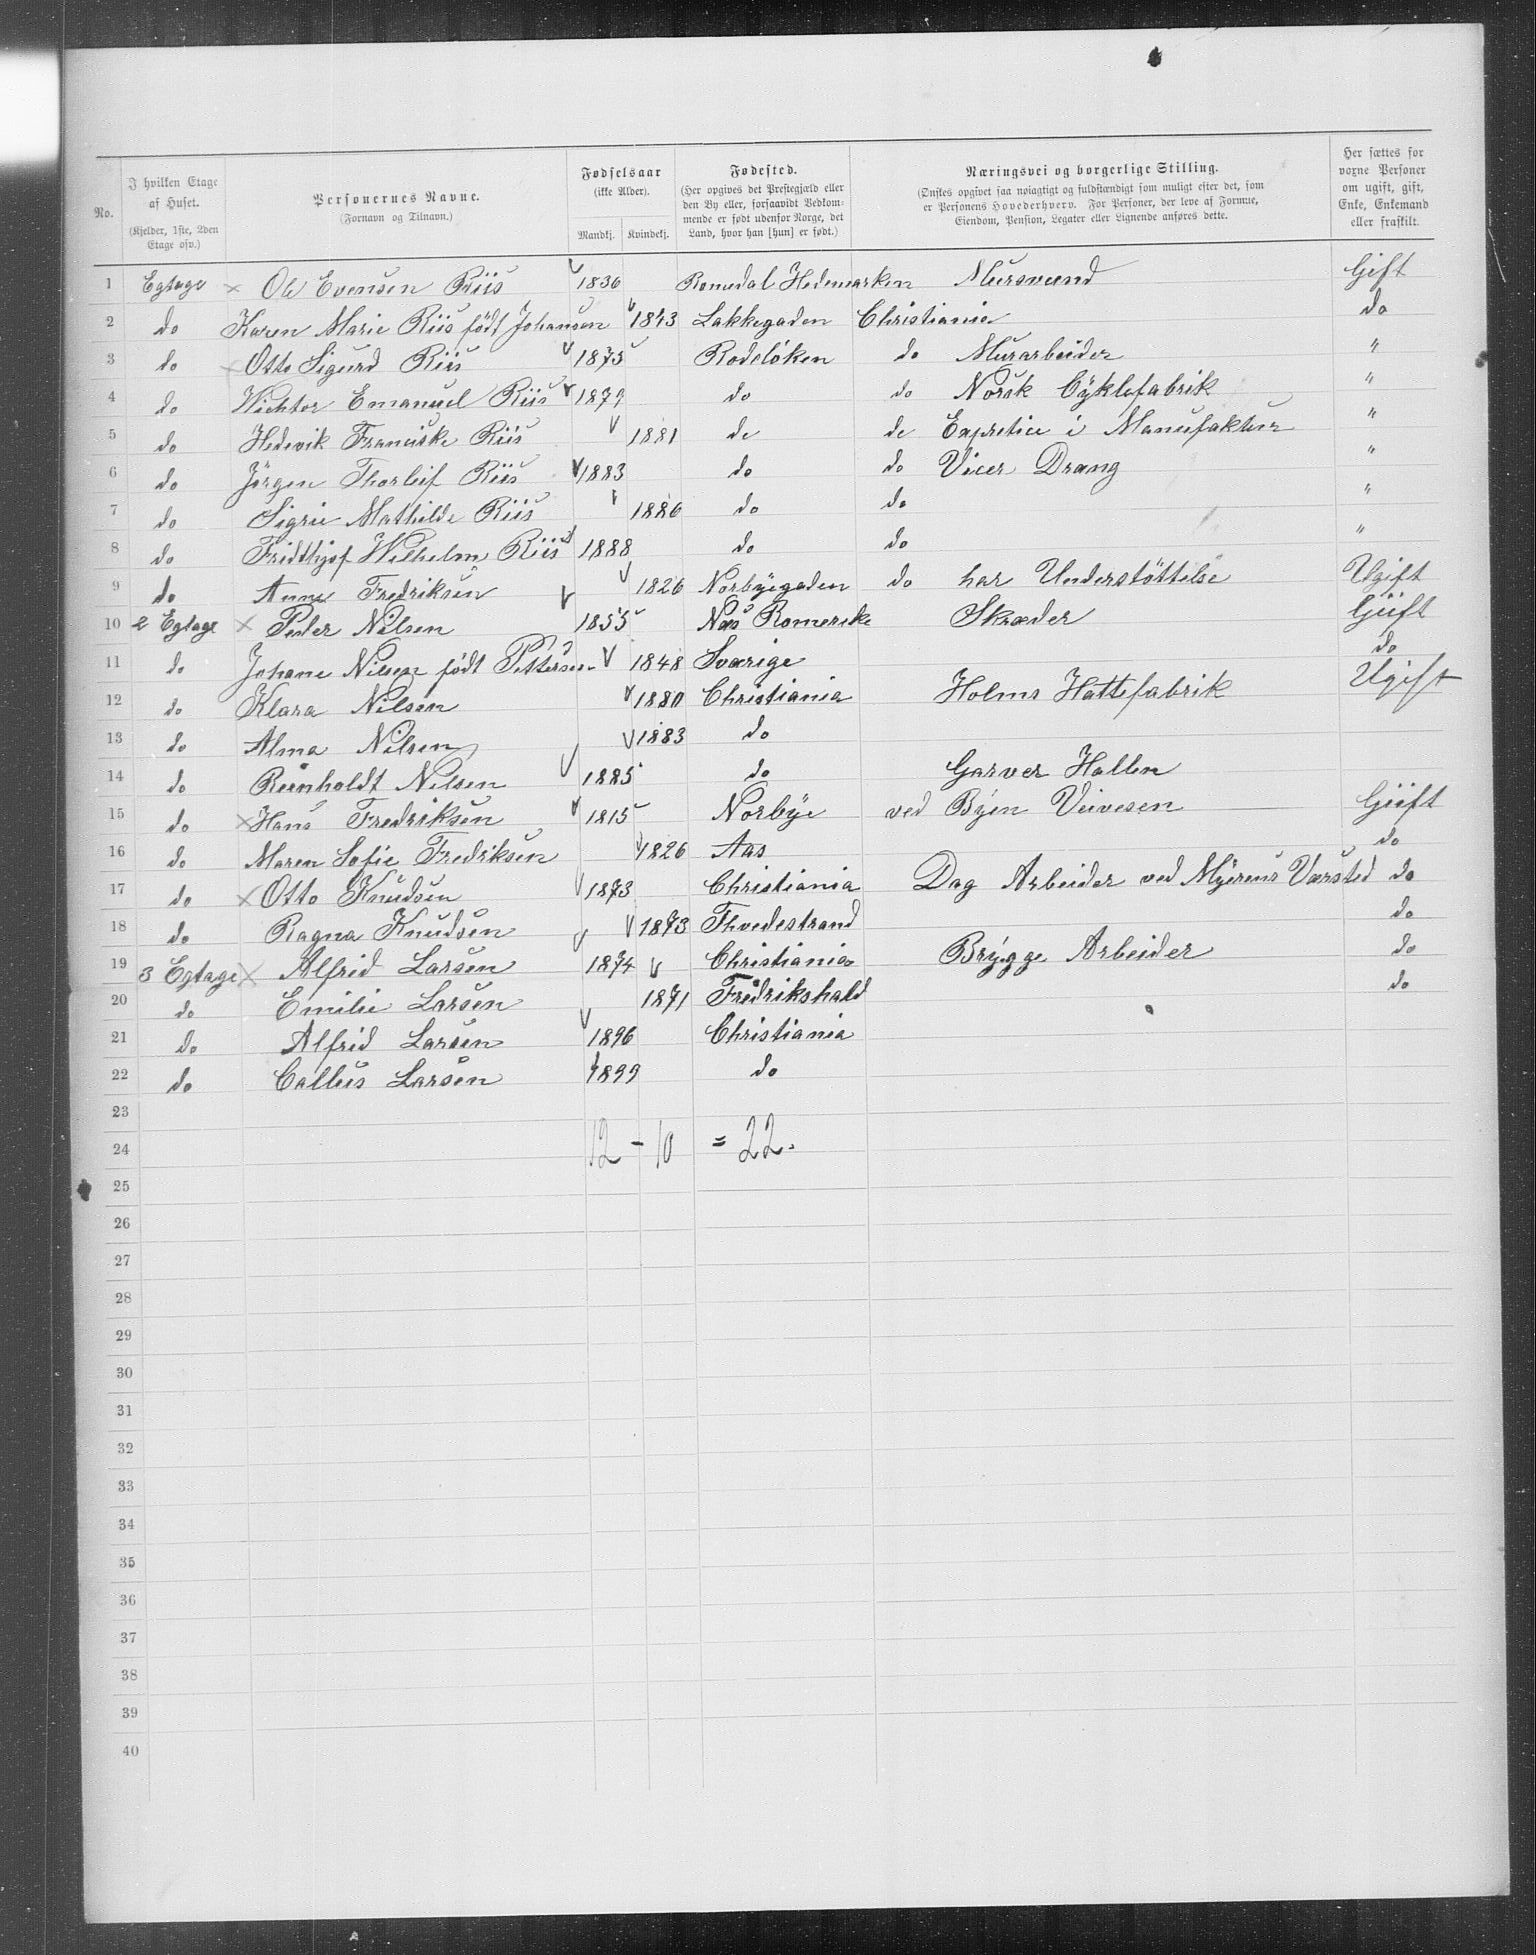 No.
I hvilken Etage af Huset. (Kjelder, 1ste, 2den Etage osv.)
Personernes Navne. (Fornavn og Tilnavn.)
Fødselsaar (ikke Alder). Mandkj. Kvindekj.
Fødested. (Her opgives det Prestegjæld eller den By eller, forsaavidt Vedkommende er født udenfor Norge, det Land, hvor han [hun] er født.)
Næringsvei og borgerlige Stilling. (Ønskes opgivet saa nøiagtigt og fuldstændigt som muligt efter det, som er Personens Hovederhverv. For Personer, der leve af Formue, Eiendom, Pension, Legater eller Lignende anføres dette.
Her sættes for voxne Personer om ugift, gift, Enke, Enkemand eller fraskilt.
1 Egtage × Ole Evensen Riis 1836 Romedal Hedemarken Mursvend Gift
2 do Karen Marie Riis født Johansen 1843 Lakkegaden Christiania do
3 do Otto Sigurd Riis 1875 Rodeløken do Murarbeider "
4 do Wichtor Emanuel Riis 1879 do do Norsk Cyklefabrik "
5 do Hedevik Franciske Riis 1881 do do i Manufaktur "
6 do Jörgen Thorleif Riis 1883 do do Vicer Drang "
7 do Sigrie Mathilde Riis 1886 do do "
8 do Fridthjof Wilhelm Riis 1888 do do "
9 do Anne Fredriksen 1826 Norbyegaden do har Understöttelse Ugift
10 2 Egtage × Peder Nilsen 1855 Næs Romerike Skræder Giift
11 do Johane Nilsen født Pettersen 1848 Sværige do
12 do Klara Nilsen 1880 Christiania Holms Hattefabrik Ugift
13 do Alma Nilsen 1883 do
14 do Reinholdt Nilsen 1885 do Garver Hallen
15 do × Hans Fredriksen 1815 Norbye ved Byen Veivesen Giift
16 do Maren Sofie Fredriksen 1826 Aas do
17 do × Otto Knudsen 1873 Christiania Dag Arbeider ved Myrens Værsted do
18 do Ragna Knudsen 1873 Thvedestrand do
19 3 Egtage × Alfrid Larsen 1874 Christiania Brygge Arbeider do
20 do Emilie Larsen 1871 Fredrikshald do
21 do Alfrid Larsen 1896 Christiania
22 do Callus Larsen 1899 do
23
24 12 - 10 = 22.
25
26
27
28
29
30
31
32
33
34
35
36
37
38
39
40